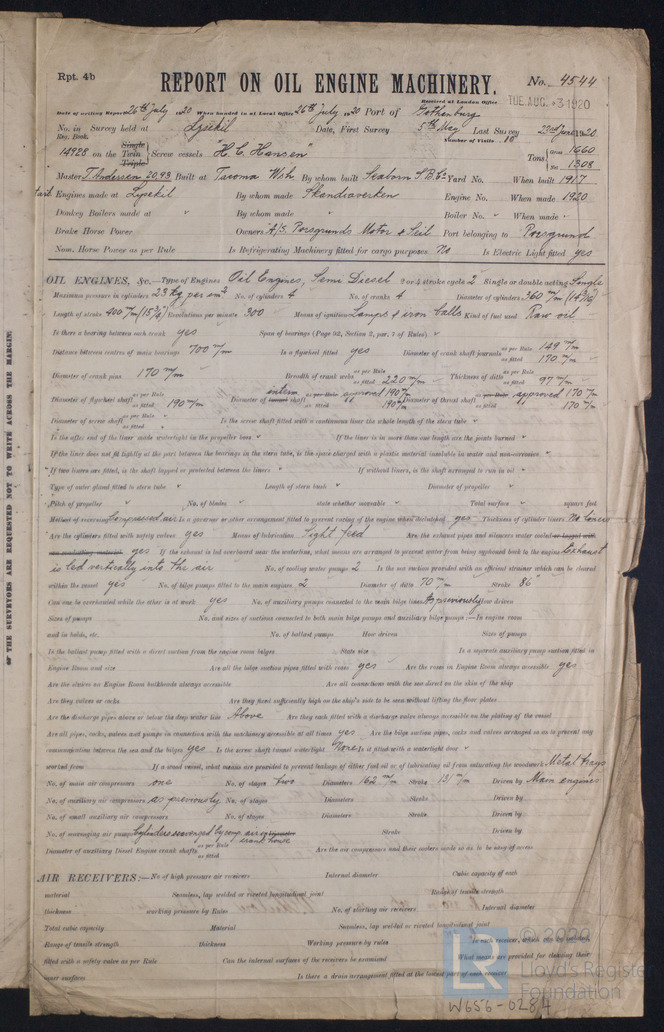 Rpt. 4b
REPORT ON OIL ENGINE MACHINERY.
No. 4544
Received at London Office TUE. AUG. -3 1920
Date of writing Report 26th July 1920 When handed in at Local Office 26th July 1920 Port of Gothenburg
No. in Survey held at Lysekil Date, First Survey 5th May Last Survey 22nd June 1920
Reg. Book. Number of Visits 10
14928 on the Single Twin Triple Screw vessels "H. C. Hansen" Tons Gross 1660 Net 1308
Master T. Andersen 20,98 Built at Tacoma Wsh. By whom built Seaborn S.B. Co Yard No. When built 1917
Engines made at Lysekil By whom made Skandiaverken Engine No. When made 1920
Donkey Boilers made at " By whom made " Boiler No. " When made "
Brake Horse Power Owners A/S Porsgrunds Motor & Seil Port belonging to Porsgrund
Nom. Horse Power as per Rule Is Refrigerating Machinery fitted for cargo purposes No Is Electric Light fitted yes
OIL ENGINES, &c.—Type of Engines Oil Engines, Semi Diesel 2 or 4 stroke cycle 2 Single or double acting Single
Maximum pressure in cylinders 23 kg per cm² No. of cylinders 4 No. of cranks 4 Diameter of cylinders 360 m/m
Length of stroke 400 m/m (15¾) Revolutions per minute 300 Means of ignition Lamps & iron balls Kind of fuel used Raw oil
Is there a bearing between each crank yes Span of bearings (Page 92, Section 2, par. 7 of Rules) "
Distance between centres of main bearings 700 m/m Is a flywheel fitted yes Diameter of crank shaft journals as per Rule 149 m/m as fitted 170 m/m
Diameter of crank pins 170 m/m Breadth of crank webs as per Rule as fitted 220 m/m Thickness of ditto as per Rule as fitted 97 m/m
Diameter of flywheel shaft as per Rule as fitted 190 m/m Diameter of interm shaft as per Rule approved 190 m/m as fitted 190 m/m Diameter of thrust shaft approved 170 m/m as fitted 170 m/m
Diameter of screw shaft as per Rule as fitted Is the screw shaft fitted with a continuous liner the whole length of the stern tube "
Is the after end of the liner made watertight in the propeller boss " If the liner is in more than one length are the joints burned "
If the liner does not fit tightly at the part between the bearings in the stern tube, is the space charged with a plastic material insoluble in water and non-corrosive "
If two liners are fitted, is the shaft lapped or protected between the liners " If without liners, is the shaft arranged to run in oil "
Type of outer gland fitted to stern tube " Length of stern bush " Diameter of propeller "
Pitch of propeller " No. of blades " state whether moveable " Total surface " square feet
Method of reversing Compressed air Is a governor or other arrangement fitted to prevent racing of the engine when declutched yes Thickness of cylinder liners No liners
Are the cylinders fitted with safety valves yes Means of lubrication Sight feed Are the exhaust pipes and silencers water cooled or lagged with
non-conducting material yes If the exhaust is led overboard near the waterline, what means are arranged to prevent water from being syphoned back to the engine Exhaust
is led vertically into the air No. of cooling water pumps 2 Is the sea suction provided with an efficient strainer which can be cleared
within the vessel yes No. of bilge pumps fitted to the main engines 2 Diameter of ditto 70 m/m Stroke 86"
Can one be overhauled while the other is at work yes No. of auxiliary pumps connected to the main bilge lines As previously How driven
Sizes of pumps No. and sizes of suctions connected to both main bilge pumps and auxiliary bilge pumps :—In engine room
and in holds, etc. No. of ballast pumps How driven Sizes of pumps
Is the ballast pump fitted with a direct suction from the engine room bilges State size Is a separate auxiliary pump suction fitted in
Engine Room and size Are all the bilge suction pipes fitted with roses yes Are the roses in Engine Room always accessible yes
Are the sluices on Engine Room bulkheads always accessible Are all connections with the sea direct on the skin of the ship
Are they valves or cocks Are they fixed sufficiently high on the ship's side to be seen without lifting the floor plates
Are the discharge pipes above or below the deep water line Above Are they each fitted with a discharge valve always accessible on the plating of the vessel
Are all pipes, cocks, valves and pumps in connection with the machinery accessible at all times yes Are the bilge suction pipes, cocks and valves arranged so as to prevent any
communication between the sea and the bilges yes Is the screw shaft tunnel watertight None Is it fitted with a watertight door "
worked from If a wood vessel, what means are provided to prevent leakage of either fuel oil or of lubricating oil from saturating the woodwork Metal trays
No. of main air compressors one No. of stages two Diameters 162 m/m Stroke Driven by Main engines
No. of auxiliary air compressors as previously No. of stages Diameters Stroke Driven by
No. of small auxiliary air compressors No. of stages Diameters Stroke Driven by
No. of scavenging air pumps Cylinders scavenged by comp. air crank house Stroke Driven by
Diameter of auxiliary Diesel Engine crank shafts as per Rule as fitted Are the air compressors and their coolers made so as to be easy of access
AIR RECEIVERS:—No. of high pressure air receivers Internal diameter Cubic capacity of each
material Seamless, lap welded or riveted longitudinal joint Range of tensile strength
thickness working pressure by Rules No. of starting air receivers Internal diameter
Total cubic capacity Material Seamless, lap welded or riveted longitudinal joint
Range of tensile strength thickness Working pressure by rules Is each receiver, which can be isolated,
fitted with a safety valve as per Rule Can the internal surfaces of the receivers be examined What means are provided for cleaning their
inner surfaces Is there a drain arrangement fitted at the lowest part of each receiver
OF THE SURVEYORS ARE REQUESTED NOT TO WRITE ACROSS THE MARGIN.
© 2020
LR
Lloyd's Register
Foundation
W656-0284